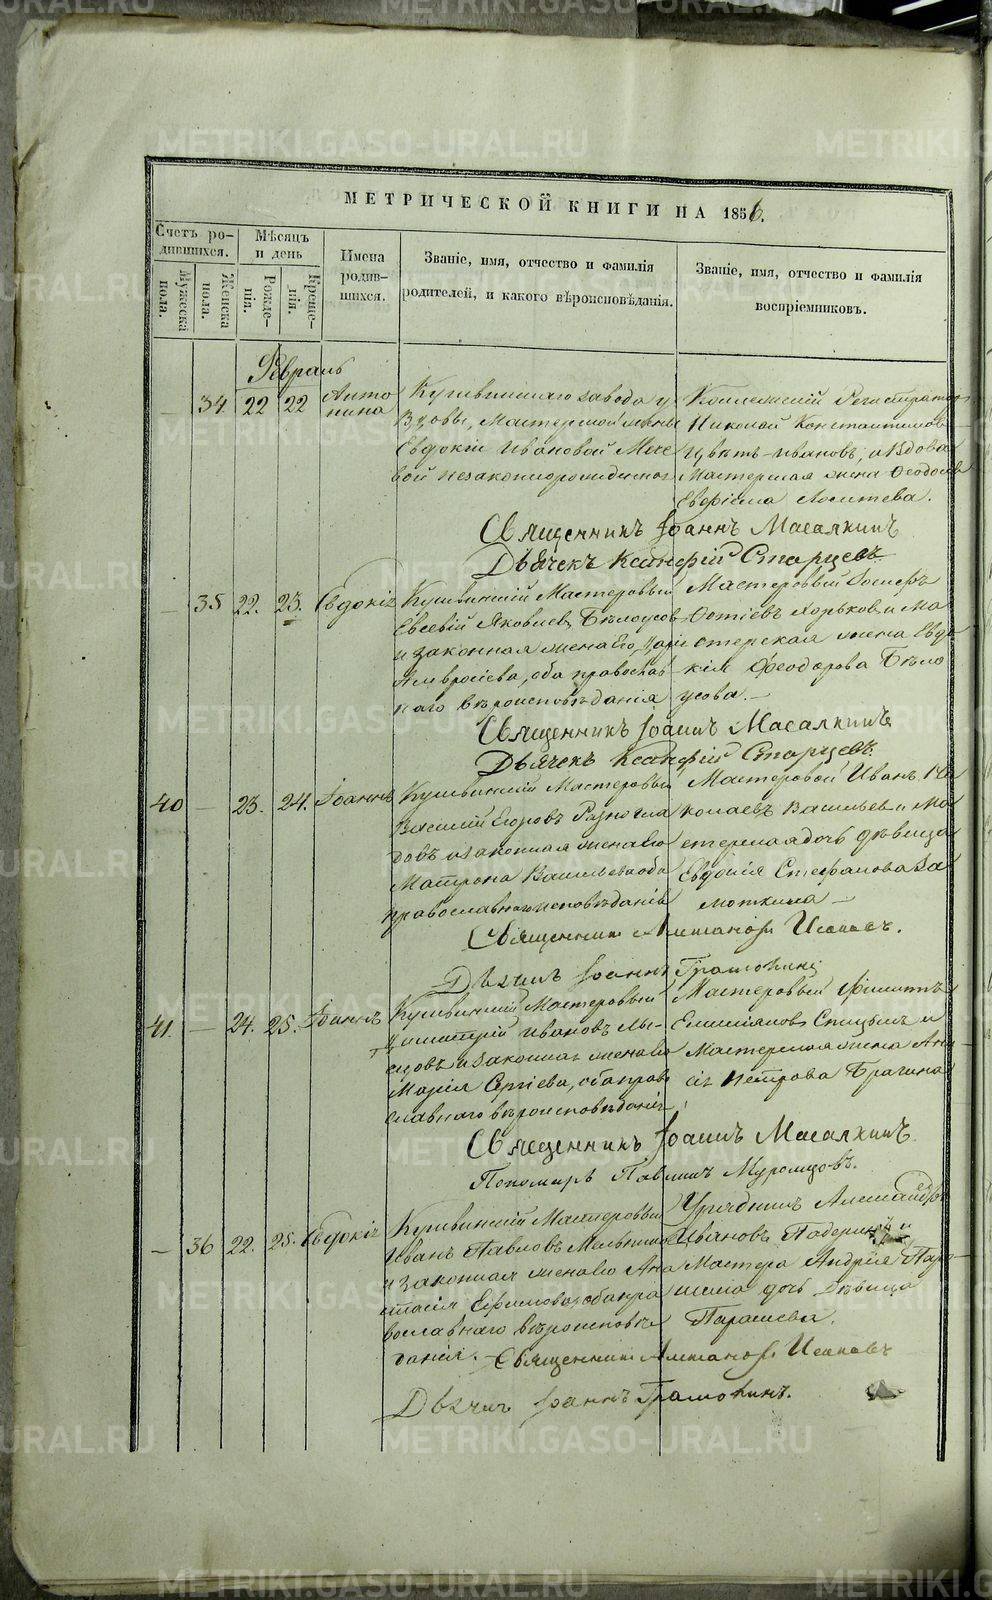 МЕТРИЧЕСКОЙ КНИГИ НА 1856.
Счетъ ро-
дившихся.
Мѣсяцъ
и день
Имена
родив-
шихся.
Званіе, имя, отчество и фамилія
родителей, и какого вѣроисповѣданія.
Званіе, имя, отчество и фамилія
воспріемниковъ.
Мужеска
пола.
Женска
пола.
Рожде-
нія.
Креще-
нія.
Февраль
— 34 22 22 Анто
нина
Кушвинскаго завода у
Вдовы, Мастерской жены
Евдокіи Ивановой
вой незаконнорожденная
Коллежскій Регистраторъ
Николай Константиновъ
Ивановъ, и Вдова
Мастерская жена Феодосья
Евфимова
Священникъ Іоаннъ Масалкинъ
Дьячекъ Ксанфій Старцевъ
— 35 22. 23. Евдокія
Кушвинскій Мастеровый
Евсевій Яковлевъ Бѣлоусов
и законная жена его, Марія
Амвросіева, оба православ
наго вѣроисповѣданія
Мастеровый Іосифъ
Фотіевъ Хорьков и Ма
стерская жена Евдо
кія Феодорова Бѣло
усова. —
Священникъ Іоаннъ Масалкинъ
Дьячекъ Ксанфій Старцевъ.
40 — 23. 24. Іоаннъ
Кушвинскій Мастеровый
Василій Егоровъ Разногла
довъ и законная жена его
Матрона Васильева оба
православнаго исповѣданія
Мастеровой Иванъ Ни
колаевъ Васильев и Ма
стерская дочь дѣвица
Евдокія Стефанова За
моткина —
Священникъ Исаковъ.
Дьячекъ Іоаннъ Грамолинъ
41. — 24. 25. Іоаннъ
Кушвинскій Мастеровый
Димитрій Ивановъ Лы-
сцовъ и законная жена его
Марія Сергіева, оба право
славнаго вѣроисповѣданія
Мастеровый Филиппъ
Емельяновъ Спицынъ и
Мастерская жена Ани
сія Петрова Брагина
Священникъ Іоаннъ Масалкинъ.
Пономарь Павлинъ Муромцовъ.
— 36 22. 25. Евдокія
Кушвинскій Мастеровый
Иванъ Павловъ Мельников
и законная жена его Ана
стасія Ефимова, оба пра
вославнаго вѣроисповѣ
данія. —
Урядникъ Александръ
Ивановъ Падеринъ и
Мастера Андрея Пар-
шева дочь дѣвица
Паршева.
Священникъ Исаковъ
Дьячекъ Іоаннъ Грамолинъ.
METRIKI.GASO-URAL.RU